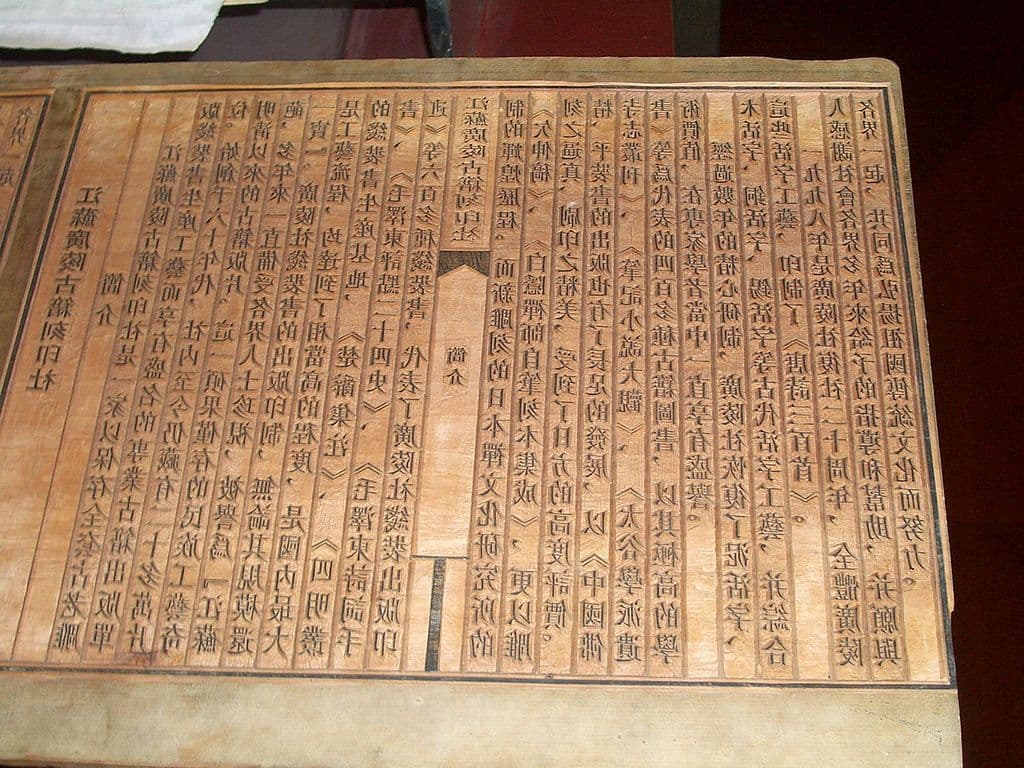 各界一起
江蘇廣陵古籍刻印社
簡介
江蘇廣陵古籍刻印社是一家以保存全套古老雕
版綫裝書生產工藝而享有盛名的專業古籍出版單
位。始創于六十年代，社内至今仍藏有二十多萬片
明清以來的古籍版片。這一碩果僅存的民族工藝奇
葩，多年來一直備受各界人士珍視，被譽爲『江蘇
一寶』。廣陵社綫裝書的出版印制，無論其規模還
是工藝流程，均達到了相當高的程度，是國内最大
的綫裝書生產基地，《楚辭集注》、《四明叢
書》、《毛澤東評點二十四史》、《毛澤東詩詞手
迹》等六百多種綫裝書，代表了廣陵社綫裝出版印
江蘇廣陵古籍刻印社
簡介
制的輝煌歷程。而新雕刻的日本禪文化研究所的
《欠伸稿》、《白隱禪師自筆刻本集成》，更以雕
刻之逼真，刷印之精美，受到了日方的高度評價。
精、平裝書的出版也有了長足的發展，以《中國佛
寺志叢刊》、《筆記小説大觀》、《太谷學派遺
書》等爲代表的四百多種古籍圖書，以其極高的學
術價值，在專家學者當中一直享有盛譽。
經過數年的精心研制，廣陵社恢復了泥活字、
木活字、銅活字、錫活字等古代活字工藝，并綜合
這些活字工藝，印制了《唐詩三百首》。
一九九八年是廣陵社復社二十周年，全體廣陵
人感謝社會各界多年來給予的指導和幫助，并願與
各界一起，共同爲弘揚祖國傳統文化而努力。